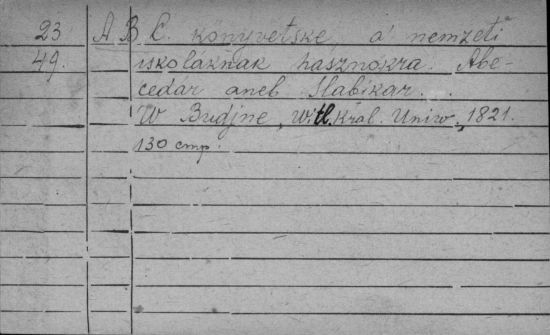 23 A B C. könyvetske a' nemzeti
49. iskoláknak hasznokra. Abe-
cedár aneb Slabikar.
W Budjne, witl. Král. Uniw., 1821.
130 cmp.